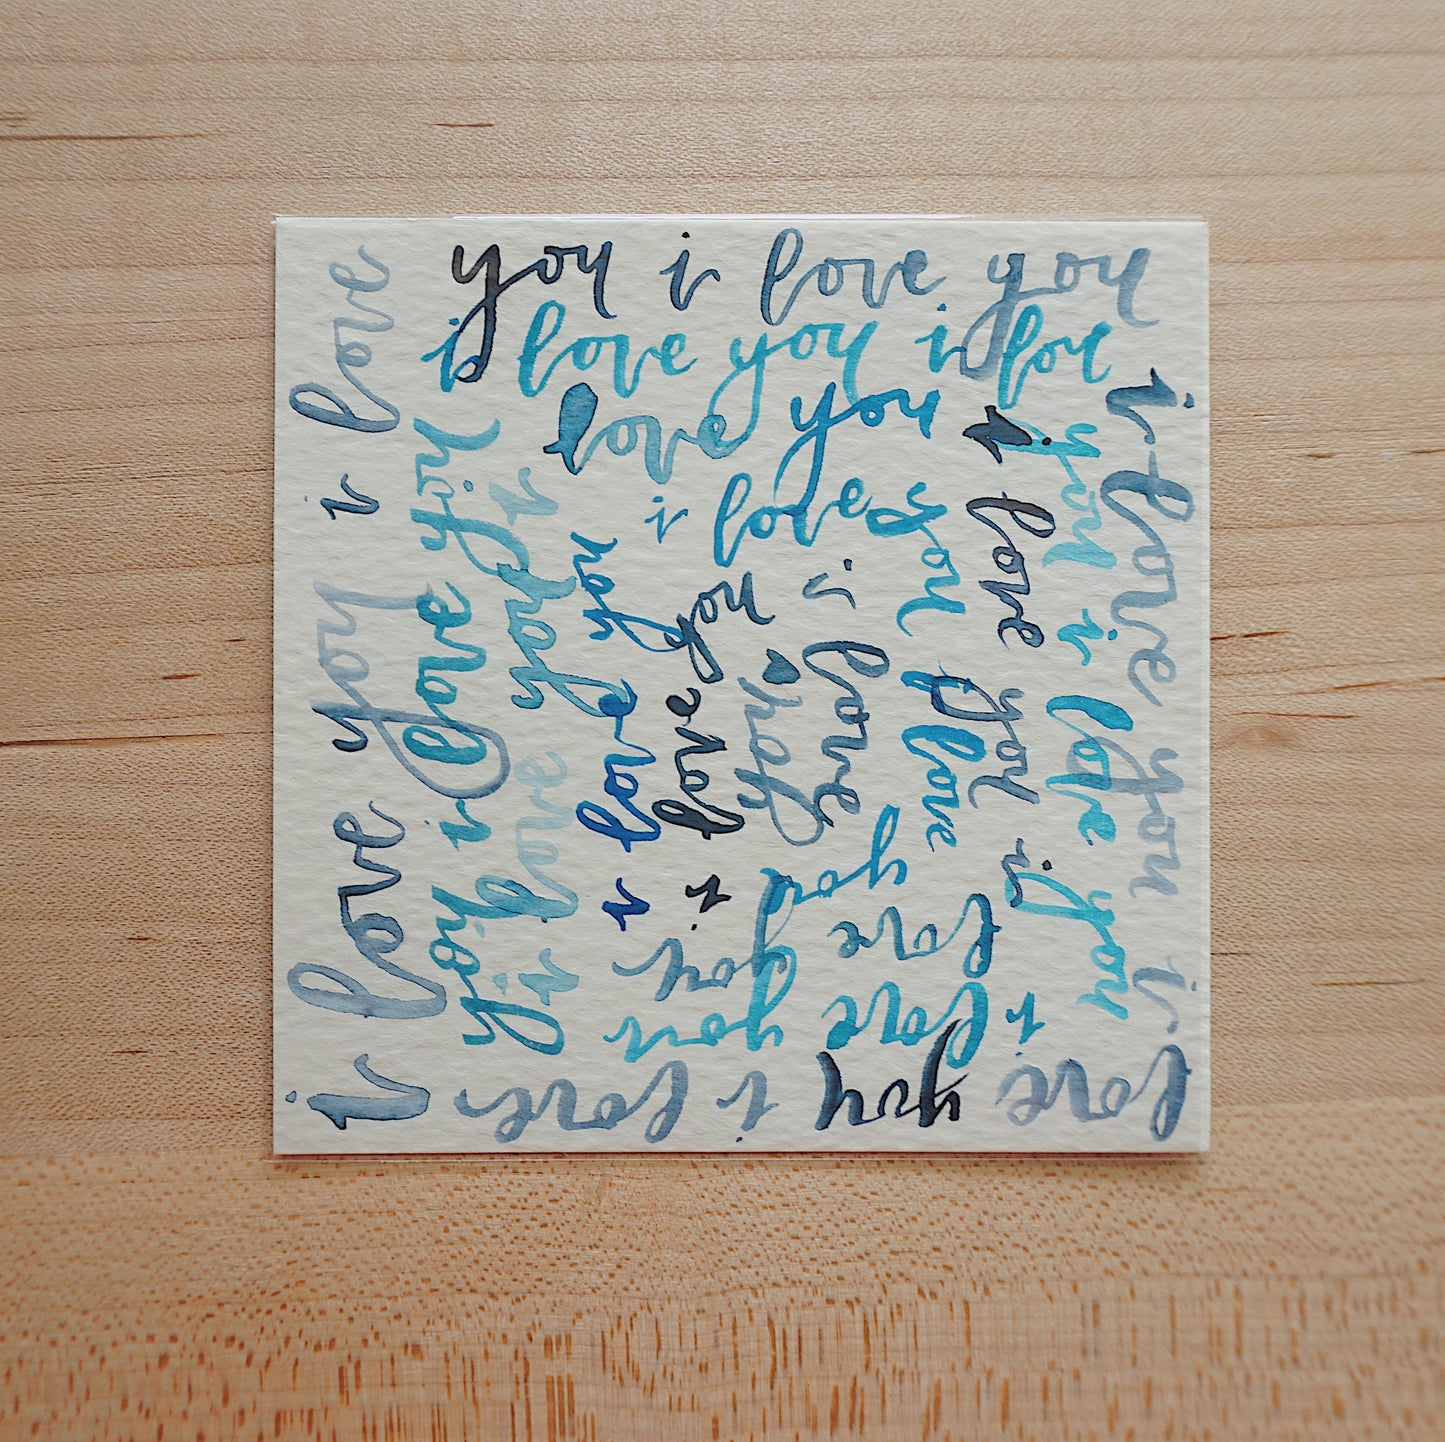 i love you i love
you i love you
i love you i
love you i love
you i love you
i love you i love
you i love you
i love you
i love you i
love you
i love you i
love you
i love you
i love
you i love
you
i love you
i love
you